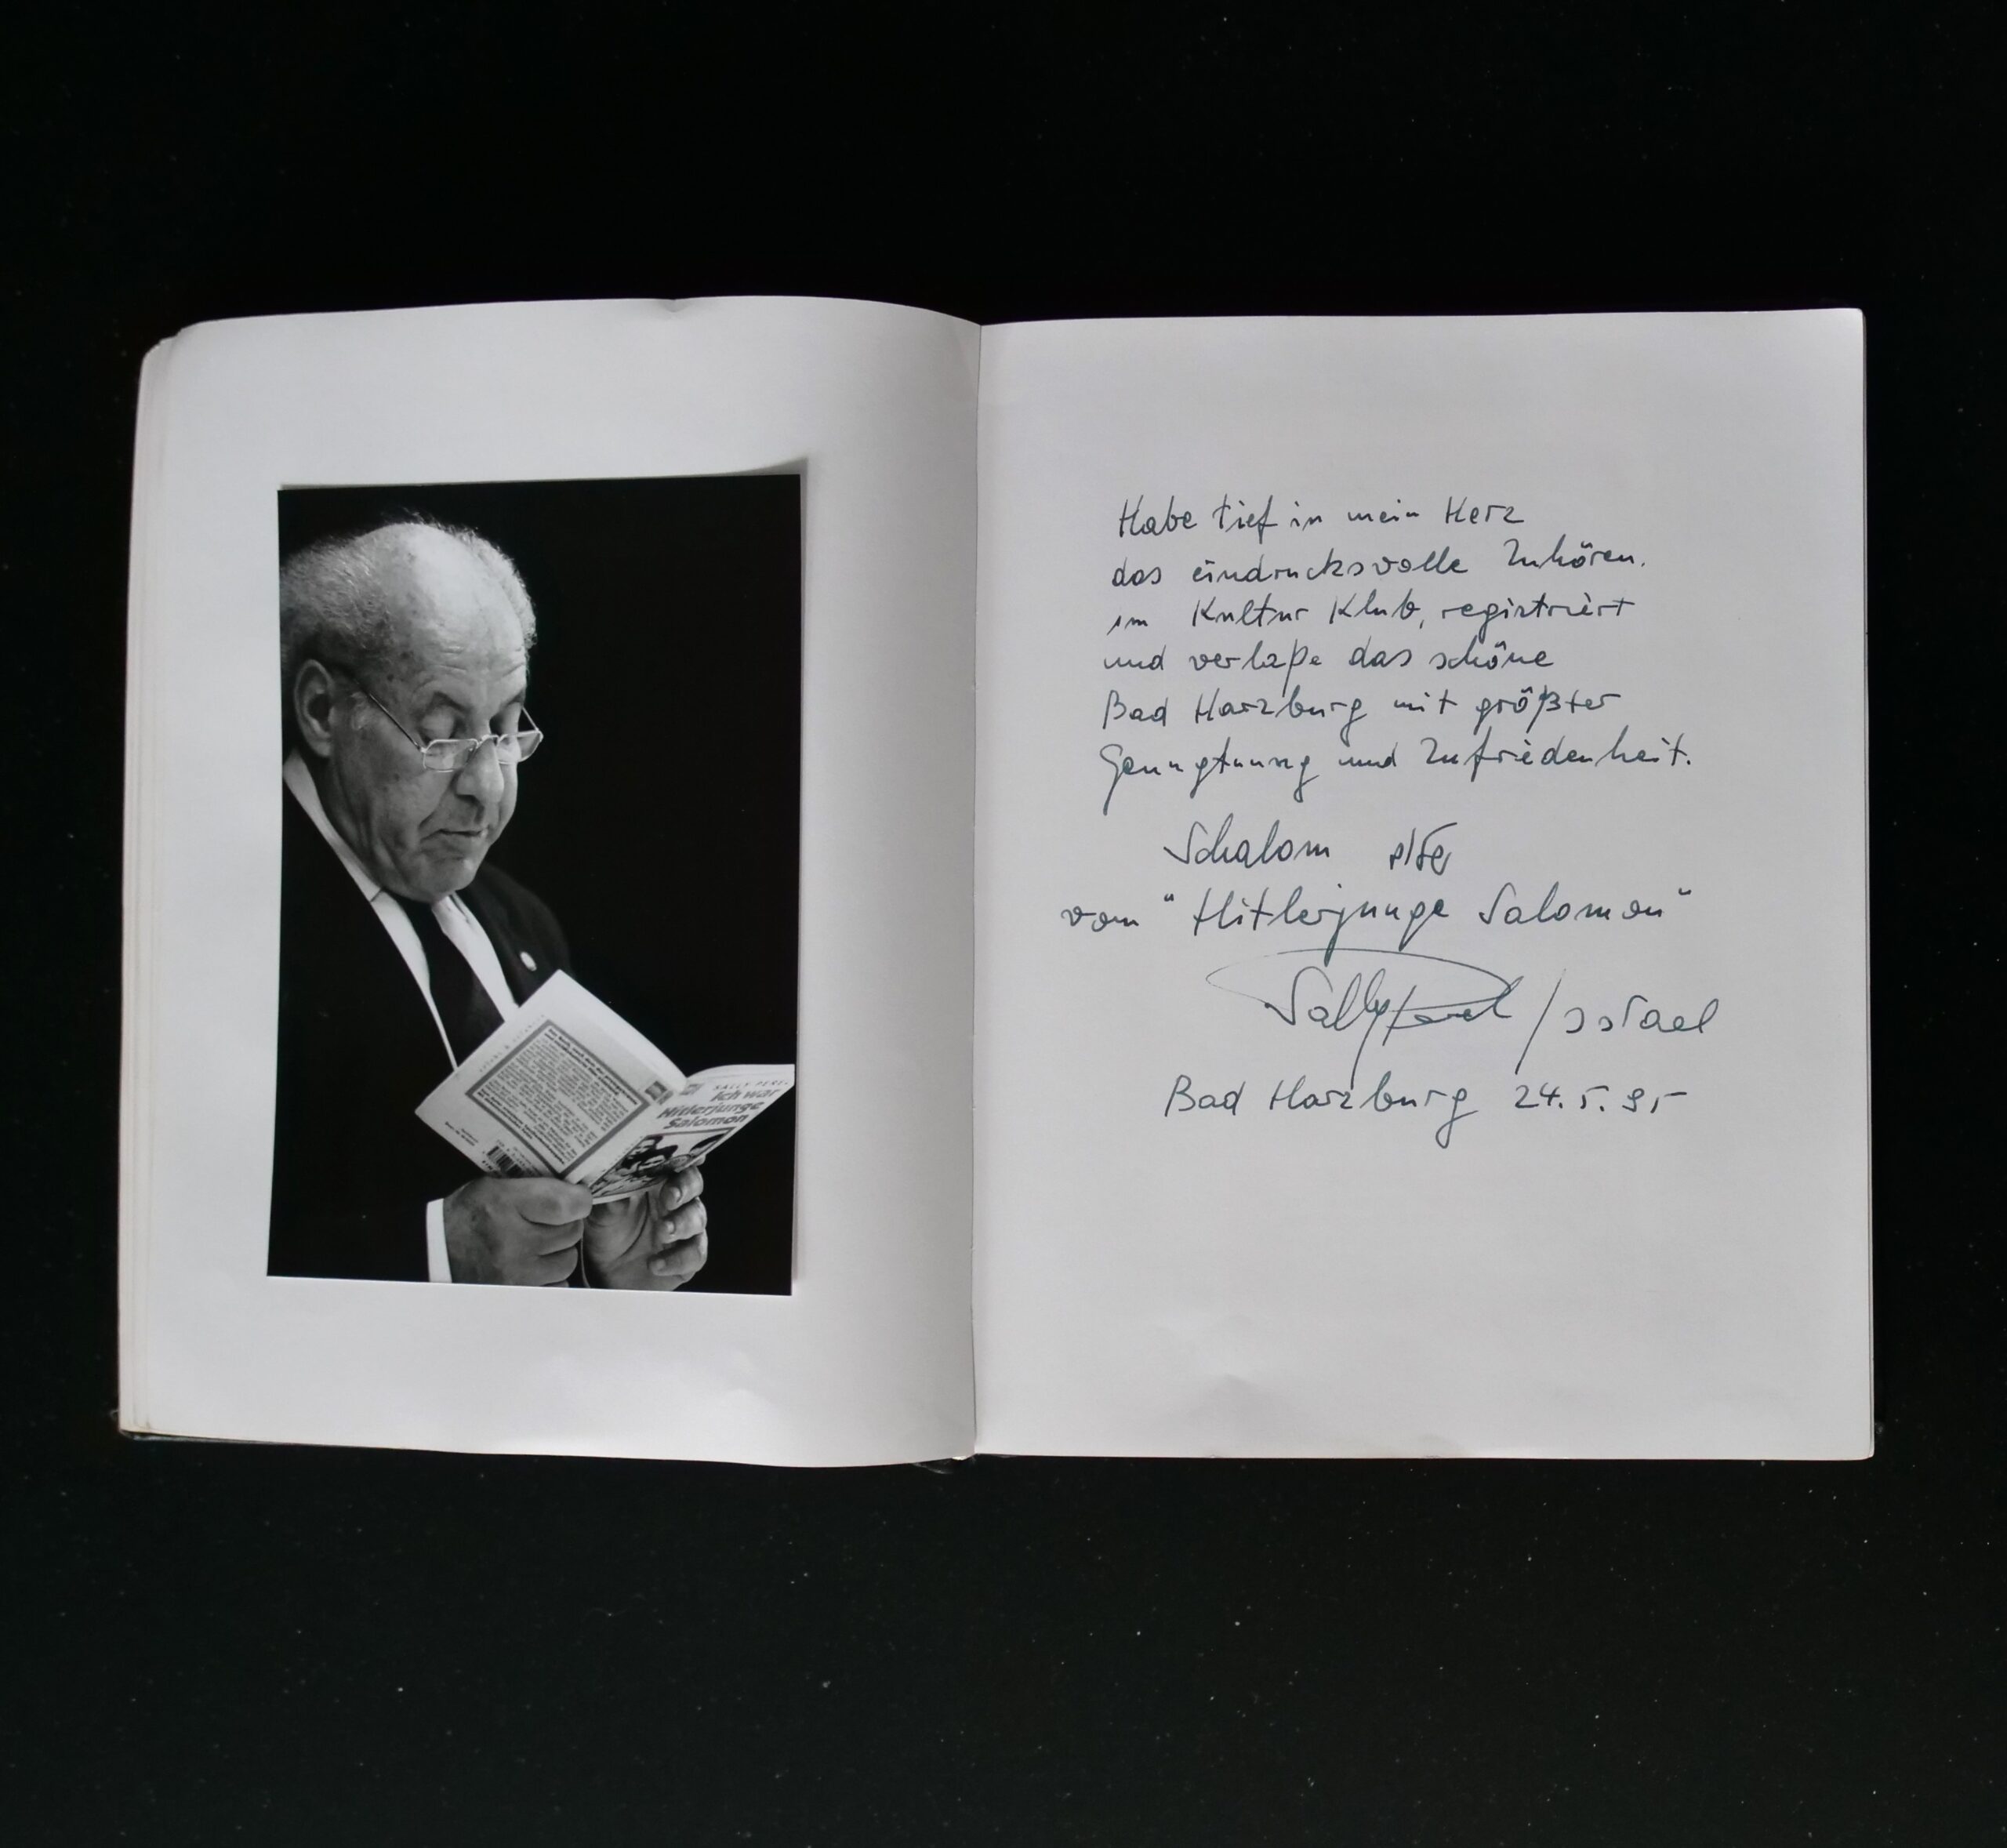 SALLY PEREL
Ich war
Hitlerjunge
Salomon
Habe tief in mein Herz
das eindrucksvolle Zuhören.
im Kultur Klub, registriert
und verlaße das schöne
Bad Harzburg mit größter
Genugtuung und Zufriedenheit.
Schalom שלום
vom "Hitlerjunge Salomon"
Sally Perel / Israel
Bad Harzburg 24.5.95